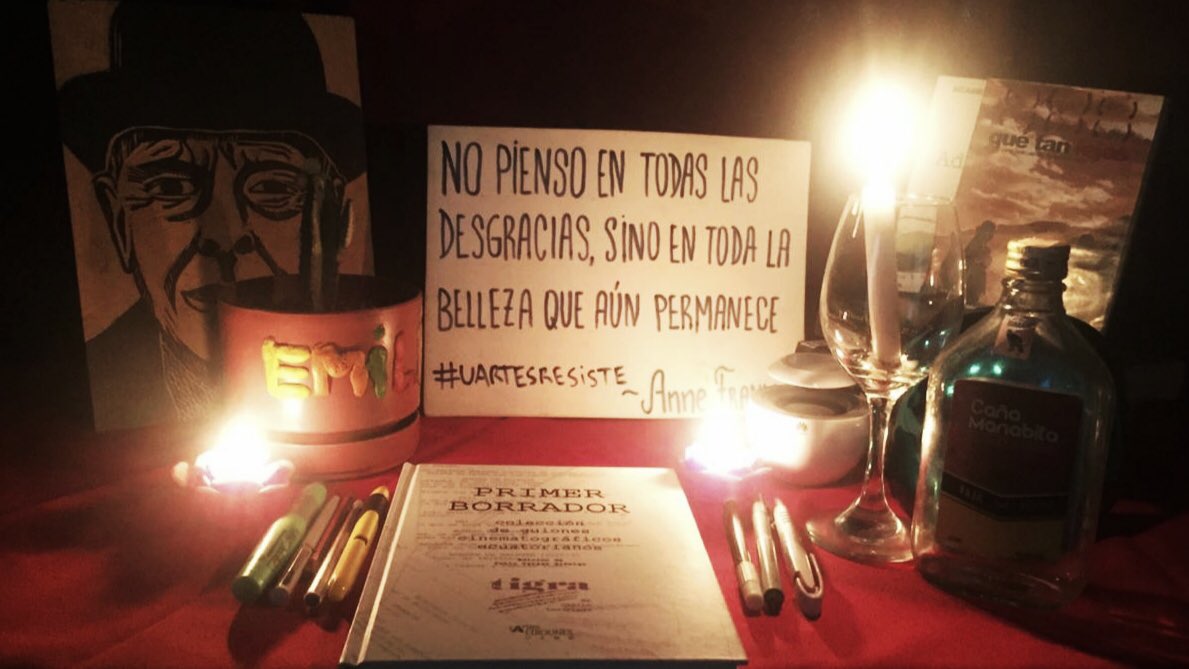 NO PIENSO EN TODAS LAS
DESGRACIAS, SINO EN TODA LA
BELLEZA QUE AÚN PERMANECE
#UARTESRESISTE
~Anne
EMIL
qué tan
Ad
Caña
Manabita
PRIMER
BORRADOR
colección
de guiones
cinematográficos
ecuatorianos
tigra